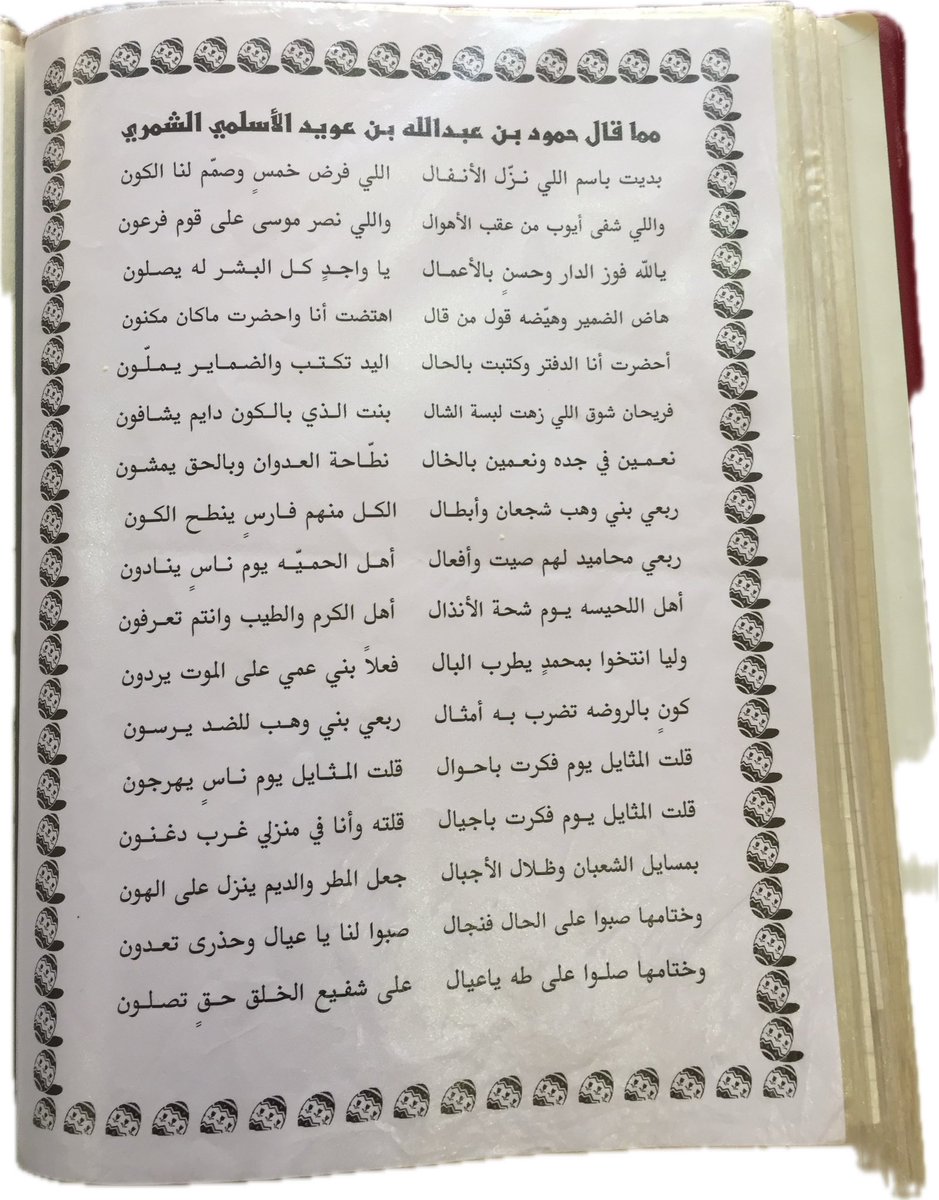 مما قال حمود بن عبدالله بن عويد الأسلمي الشمري
بديت باسم اللي نـزّل الأنـفـال اللي فرض خمسٍ وصمّم لنا الكون
واللي شفى أيوب من عقب الأهوال واللي نصر موسى على قوم فرعون
يالله فوز الدار وحسنٍ بالأعمـال يا واجـدٍ كـل البـشـر له يصـلون
هاض الضمير وهيّضه قول من قال اهتضت أنا واحضرت ماكان مكنون
أحضرت أنا الدفتر وكتبت بالحال اليد تـكـتـب والضـمـايـر يـمـلّـون
فريحان شوق اللي زهت لبسة الشال بنت الـذي بالـكون دايم يشـافون
نعـمـين في جده ونعـمين بالخال نطّاحة العـدوان وبالحق يمشـون
ربعي بني وهب شجعان وأبطـال الكـل منهم فـارسٍ ينطـح الكـون
ربعي محاميد لهم صيت وأفعال أهـل الحميّـه يوم نـاسٍ ينـادون
أهل اللحيسه يـوم شحة الأنذال أهل الكرم والطيب وانتم تعـرفون
وليا انتخوا بمحمدٍ يطرب البال فعلاً بني عمي على الموت يردون
كونٍ بالروضه تضرب بـه أمثـال ربعي بني وهـب للضـد يـرسـون
قلت المثايل يوم فكرت باحـوال قلت المـثـايل يوم نـاسٍ يهرجون
قلت المثايل يـوم فكرت باجيال قلته وأنا في منزلي غـرب دغـنـون
بمسايل الشعبان وظـلال الأجبال جعل المطر والديم ينزل على الهون
وختامها صبوا على الحال فنجال صبوا لنا يا عيال وحذرى تعـدون
وختامها صلـوا على طه ياعيال على شفـيع الخلـق حـقٍ تصلـون